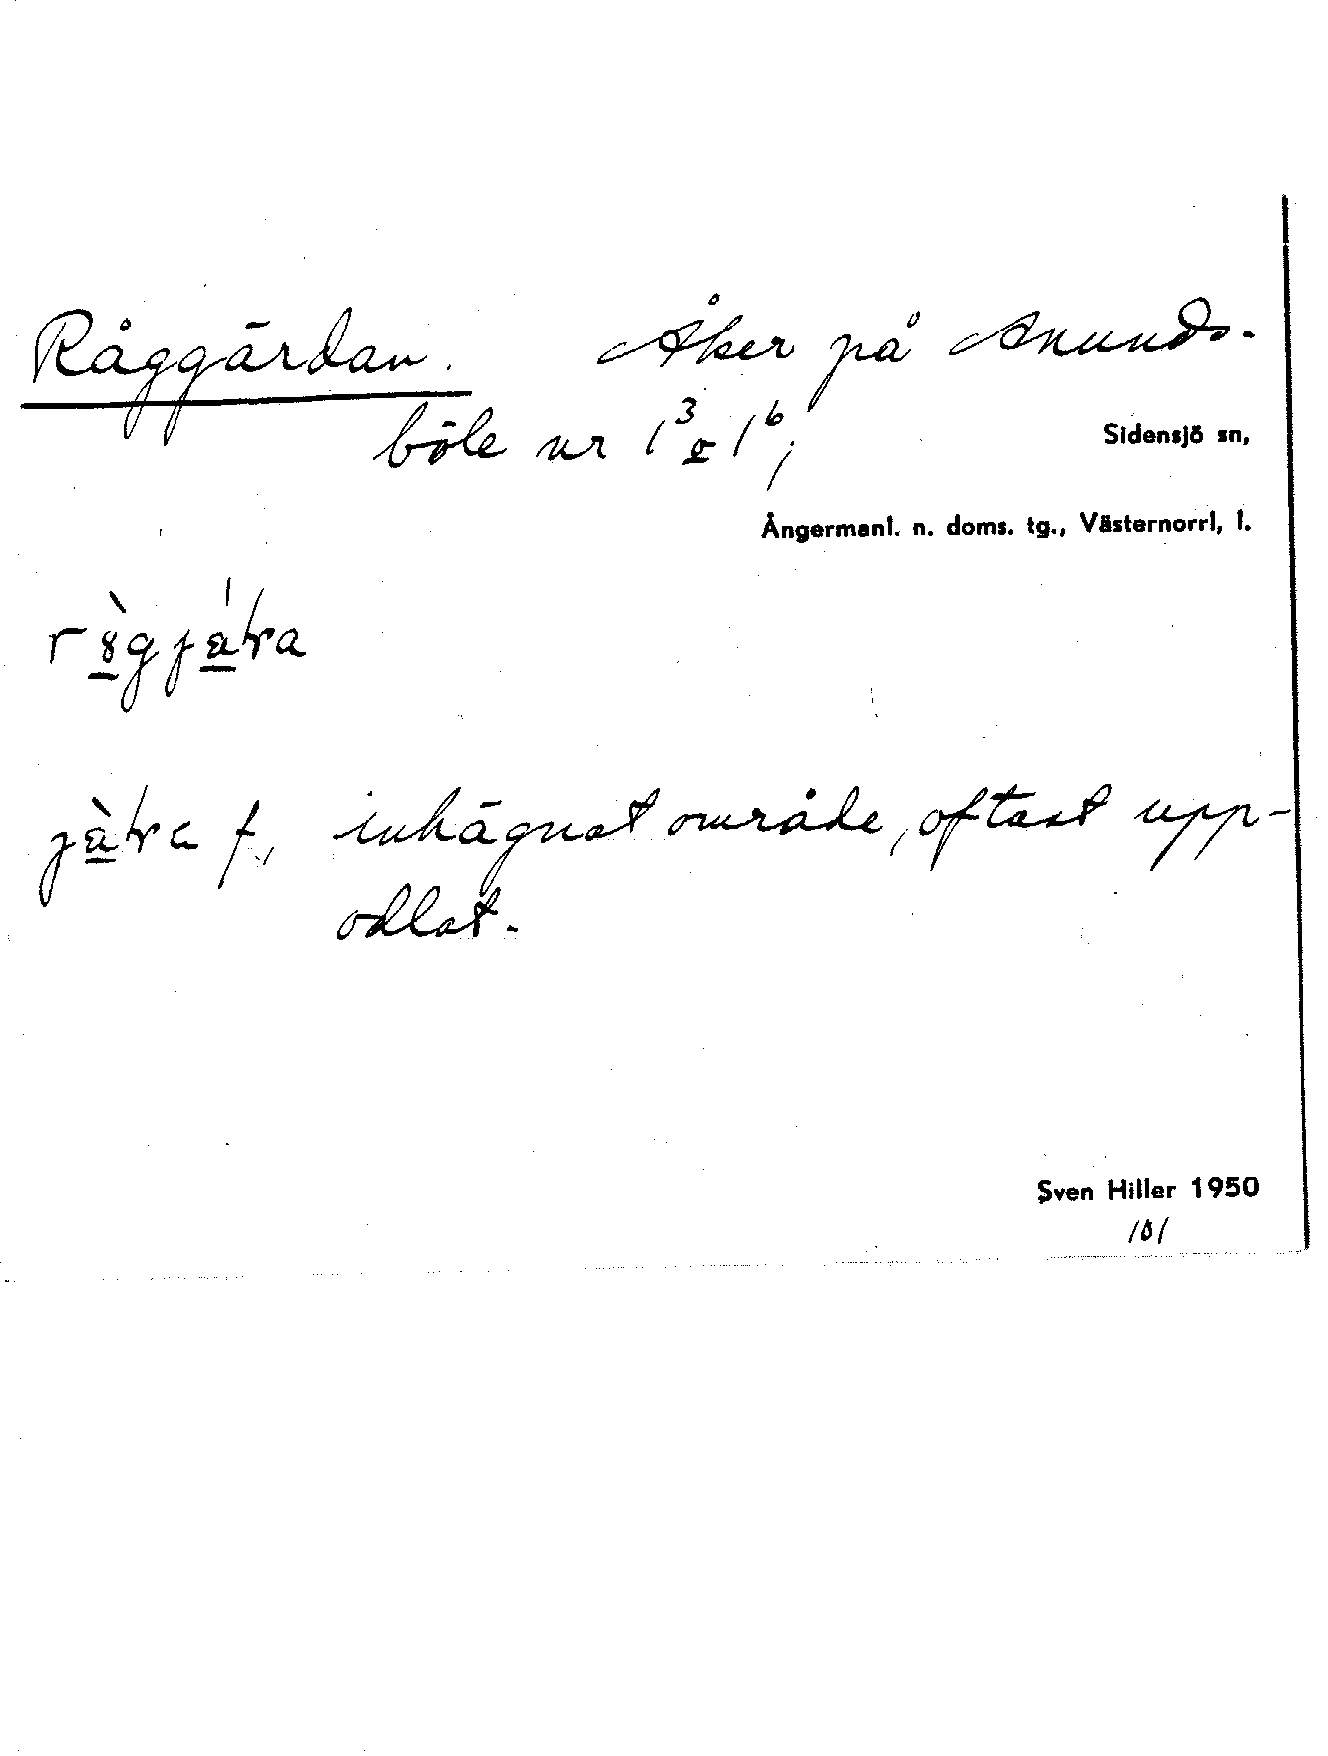 Råggärdan. Åker på Anunds-
böle nr 1³ o 1⁶;
Sidensjö sn,
Ångermanl. n. doms. tg., Västernorrl. l.
inhägnat område, oftast upp-
odlat.
Sven Hiller 1950
101